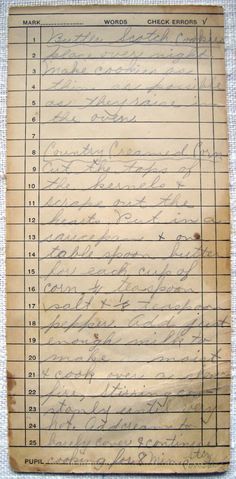 MARK WORDS CHECK ERRORS
1 Butter Scotch Cookies
2 plan over night
3 make cookies as
4 thin as possible
5 as they raise in
6 the oven
7
8 Country Creamed Corn
9 Cut the tops of
10 the kernels &
11 scrape out the
12 hearts Put in a
13 saucepan & on
14 table spoon butter
15 for each cup of
16 corn ½ teaspoon
17 salt & teaspoon
18 pepper Add just
19 enough milk to
20 make moist
21 & cook over a slow
22 fire, stirring con
23 stantly until very
24 hot. Add cream to
25 barely cover & continue
PUPIL cooking for